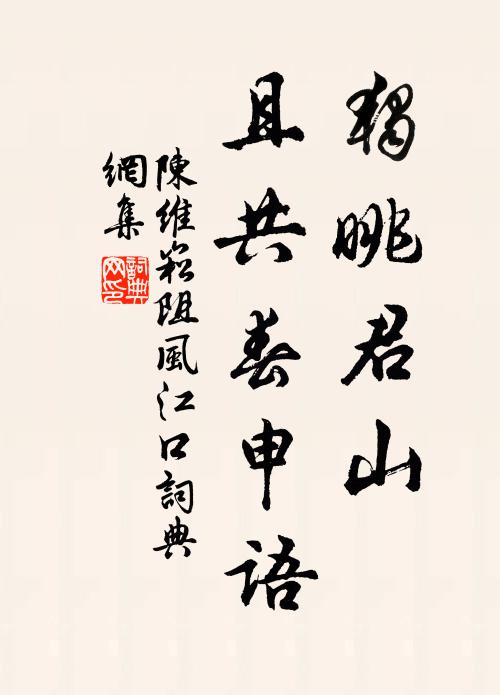 獨眺君山
且共春申語
陳維崧阻風江口詞典
網集
詞典網印